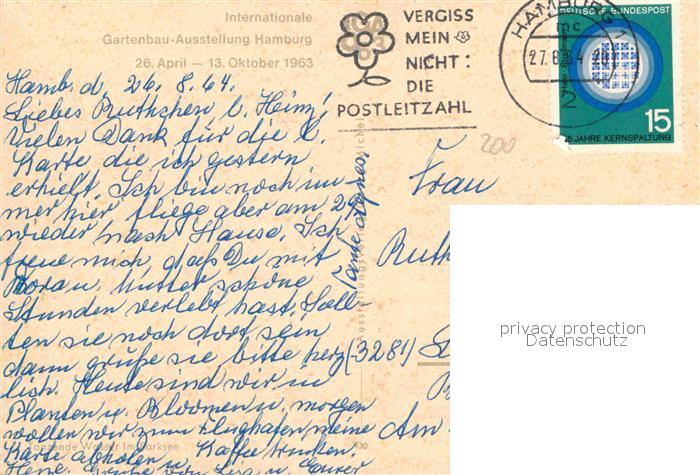 Internationale
Gartenbau-Ausstellung Hamburg
26. April — 13. Oktober 1963
VERGISS
MEIN
NICHT:
DIE
POSTLEITZAHL
HAMBURG 1
mc
27.8.64
2
DEUTSCHE BUNDESPOST
Hahn/Straßmann
15
25 JAHRE KERNSPALTUNG
200
Hamb. d. 26. 8. 64.
Liebes Ruthchen l. Heinz!
Vielen Dank für die l.
Karte die ich gestern
erhielt. Ich bin noch im-
mer hier, fliege aber am 29.
wieder nach Hause. Ich
freue mich, daß Du mit
Mutter schöne
Stunden verlebt hast. Soll-
ten sie noch dort sein
dann grüße sie bitte herz-
lich. Heute sind wir in
Planten u. Bloomen u. morgen
wollen wir zum Flughafen meine
Karte abholen u. Kaffee trinken.
Herzl. Grüße von Lisa u.
Tante Agnes
Frau
Ruth
(3281)
Am
Tanzende Wasser im Parksee
privacy protection
Datenschutz